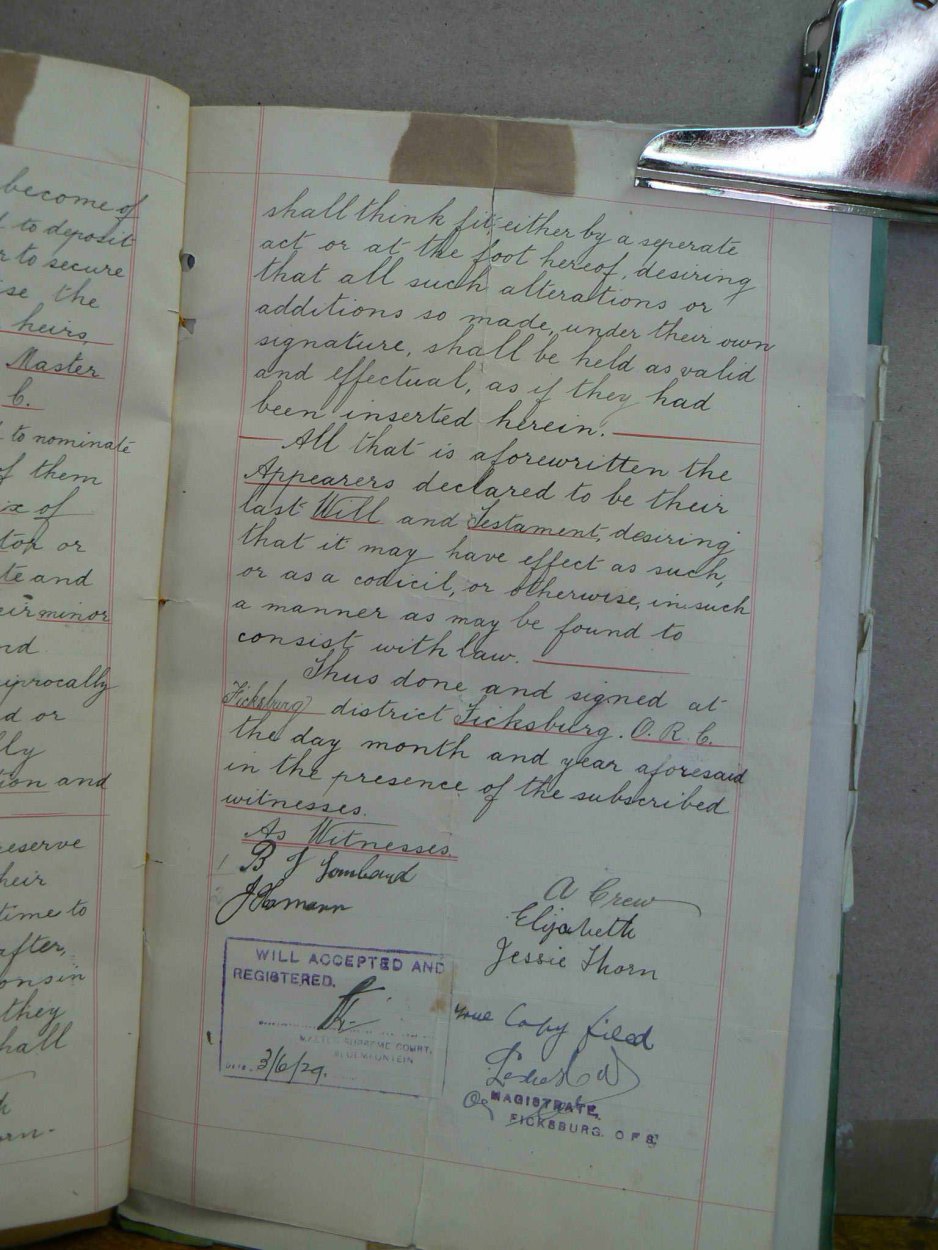 become of
to deposit
to secure
the
heirs,
Master
C.
to nominate
of them
of
or
and
minor
reciprocally
or
and
reserve
their
time to
after,
they
shall
shall think fit, either by a seperate
act or at the foot hereof, desiring
that all such alterations or
additions so made, under their own
signature, shall be held as valid
and effectual, as if they had
been inserted herein.
All that is aforewritten the
Appearers declared to be their
last Will and Testament, desiring
that it may have effect as such,
or as a codicil, or otherwise, in such
a manner as may be found to
consist with law.
Thus done and signed at
Ficksburg district Ficksburg. O. R. C.
the day month and year aforesaid
in the presence of the subscribed
witnesses.
As Witnesses.
1 B J Lombaud
A Crew
Elizabeth
Jessie Thorn
WILL ACCEPTED AND
REGISTERED.
MASTER SUPREME COURT,
BLOEMFONTEIN
DATE. 3/6/29.
true Copy filed
MAGISTRATE,
FICKSBURG. O F S